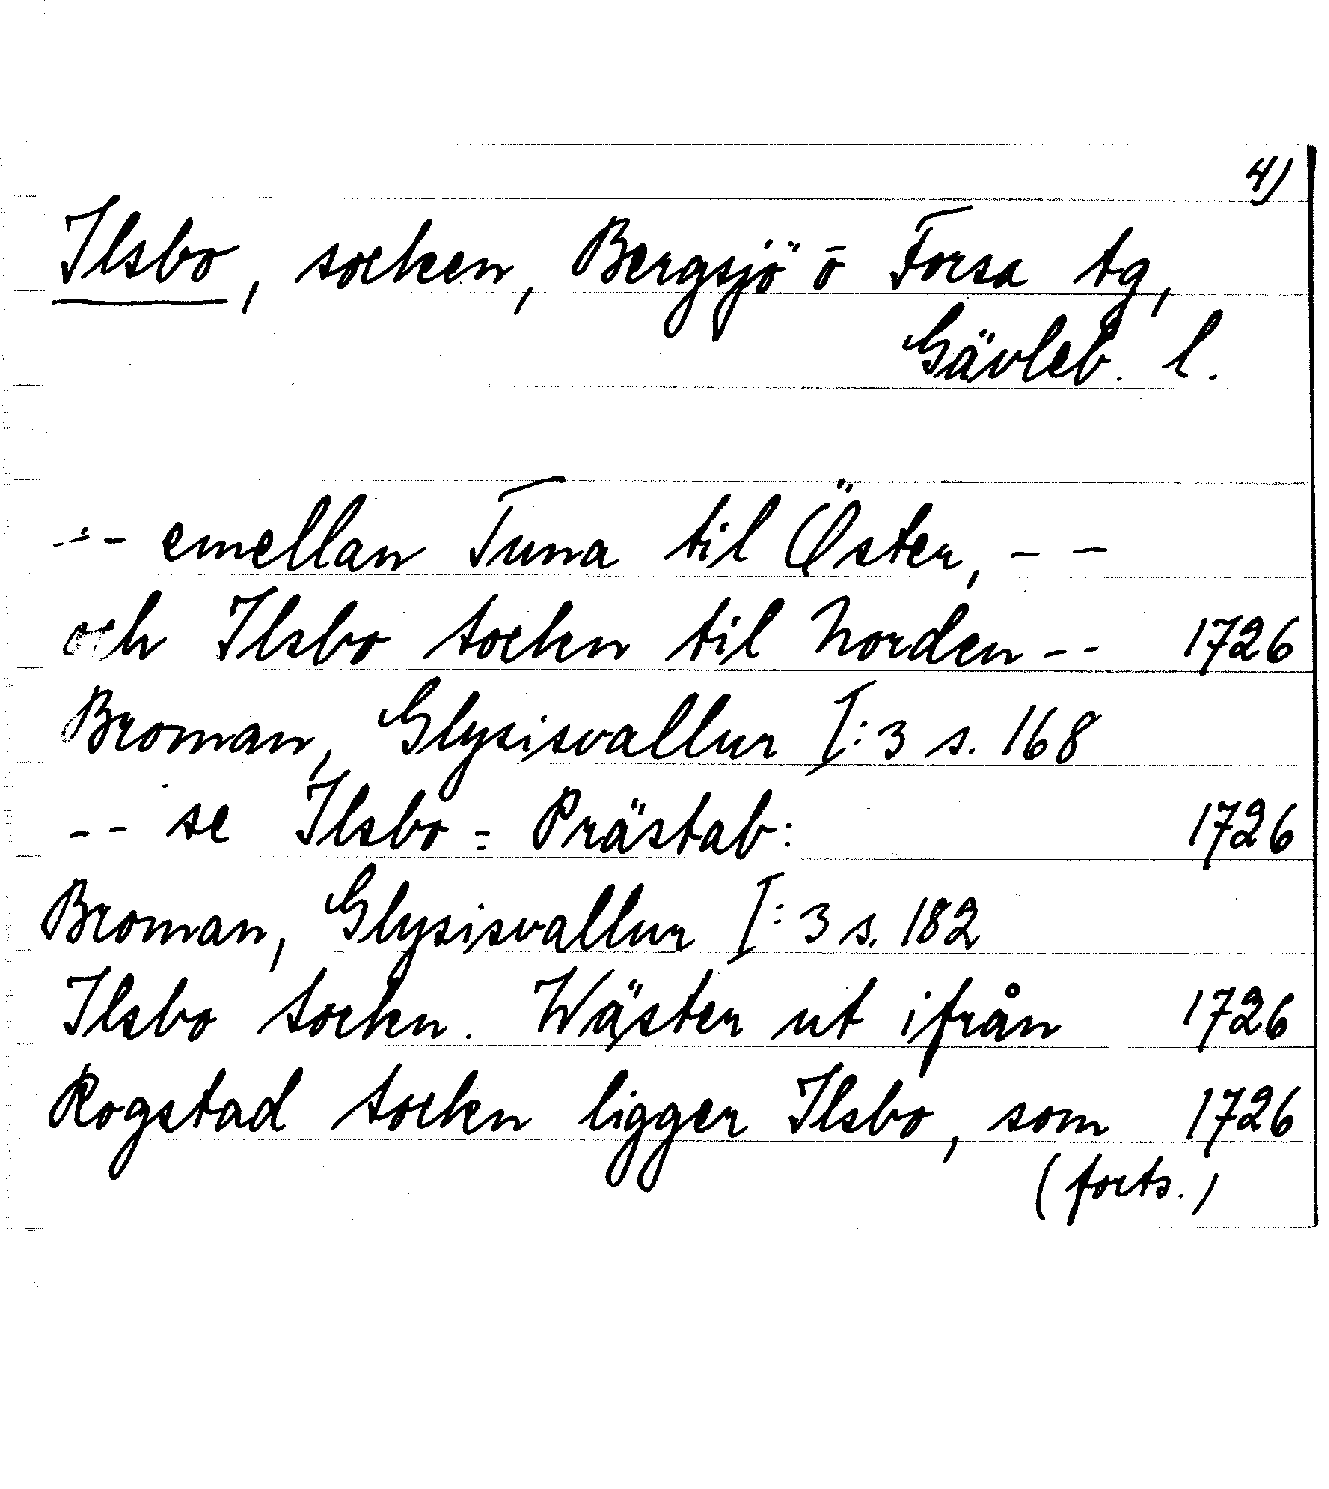 4)
Ilsbo, socken, Bergsjö o Forsa tg,
Gävleb. l.
-- emellan Tuna til Öster, --
och Ilsbo Sockn til Norden -- 1726
Broman, Glysisvallur I:3 s. 168
-- se Ilsbo = Prästab: 1726
Broman, Glysisvallur I:3 s. 182
Ilsbo Sockn. Wäster ut ifrån 1726
Rogstad Sockn ligger Ilsbo, som 1726
(forts.)